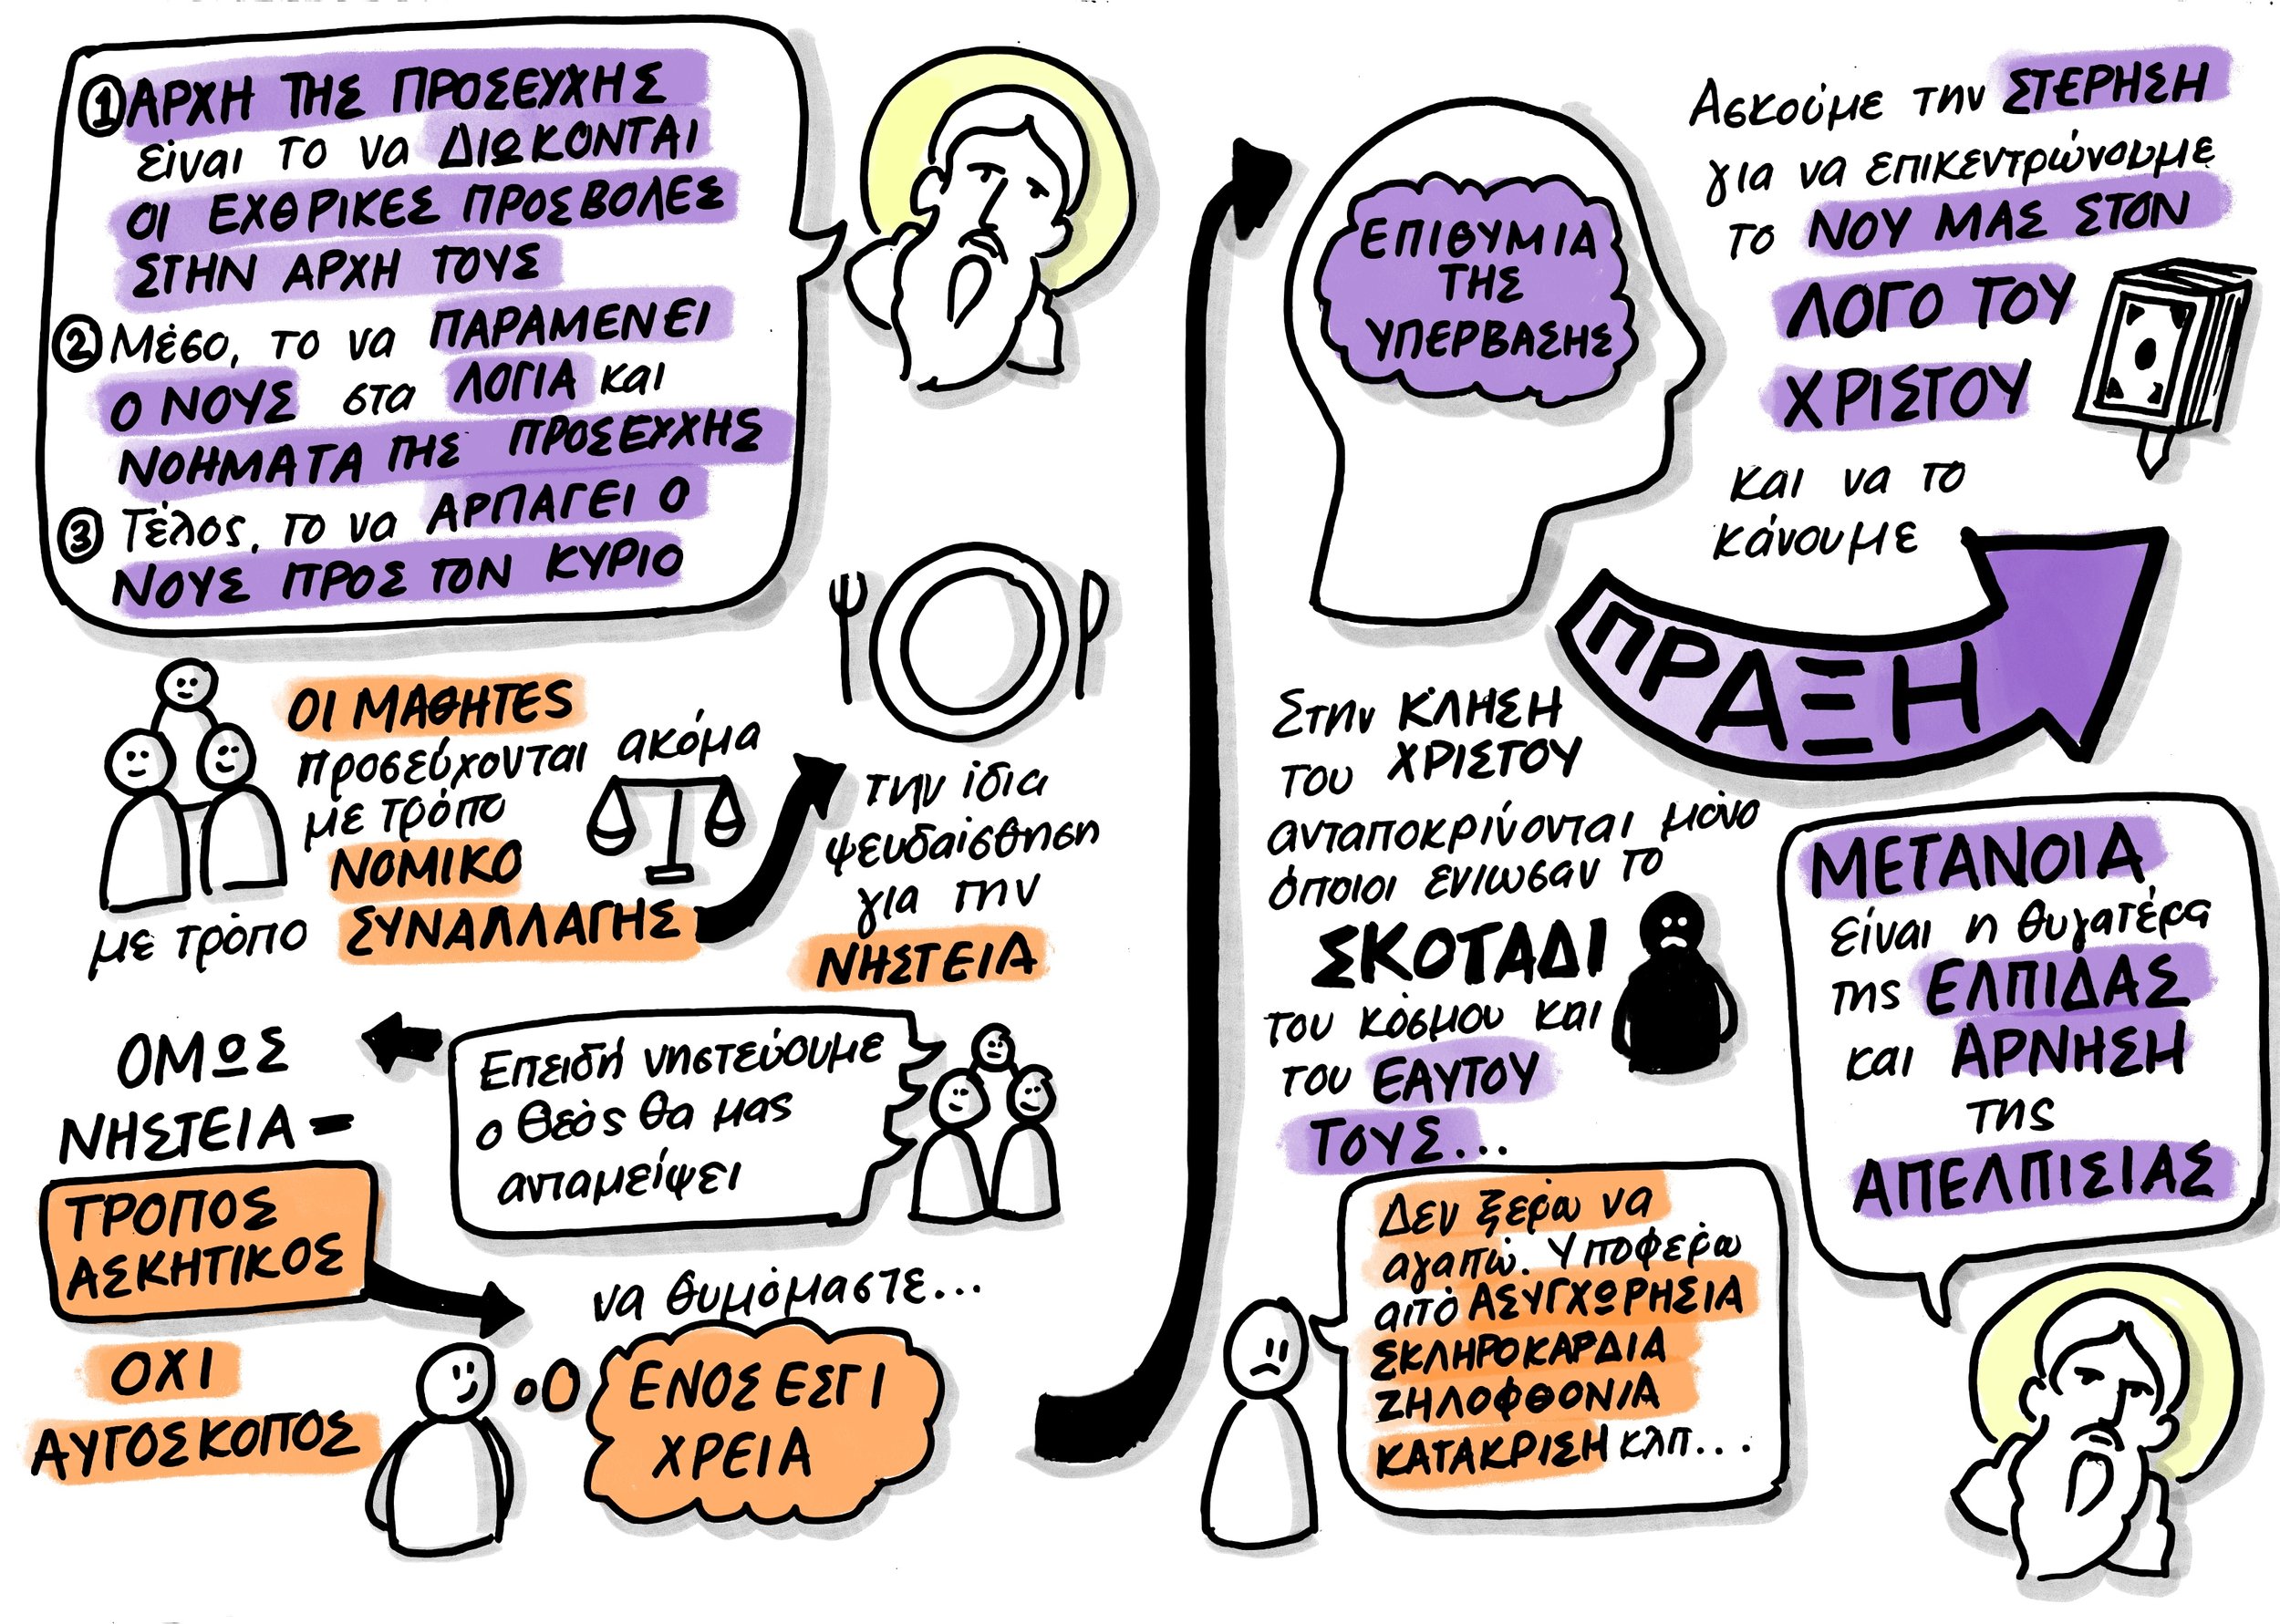 ① ΑΡΧΗ ΤΗΣ ΠΡΟΣΕΥΧΗΣ
είναι το να ΔΙΩΚΟΝΤΑΙ
ΟΙ ΕΧΘΡΙΚΕΣ ΠΡΟΣΒΟΛΕΣ
ΣΤΗΝ ΑΡΧΗ ΤΟΥΣ
② Μέσο, το να ΠΑΡΑΜΕΝΕΙ
Ο ΝΟΥΣ στα ΛΟΓΙΑ και
ΝΟΗΜΑΤΑ ΤΗΣ ΠΡΟΣΕΥΧΗΣ
③ Τέλος, το να ΑΡΠΑΓΕΙ Ο
ΝΟΥΣ ΠΡΟΣ ΤΟΝ ΚΥΡΙΟ
ΟΙ ΜΑΘΗΤΕΣ
προσεύχονται ακόμα
με τρόπο
ΝΟΜΙΚΟ
με τρόπο ΣΥΝΑΛΛΑΓΗΣ
την ίδια
ψευδαίσθηση
για την
ΝΗΣΤΕΙΑ
Επειδή νηστεύουμε
ο Θεός θα μας
ανταμείψει
ΟΜΩΣ
ΝΗΣΤΕΙΑ =
ΤΡΟΠΟΣ
ΑΣΚΗΤΙΚΟΣ
ΟΧΙ
ΑΥΤΟΣΚΟΠΟΣ
να θυμόμαστε...
ΕΝΟΣ ΕΣΤΙ
ΧΡΕΙΑ
ΕΠΙΘΥΜΙΑ
ΤΗΣ
ΥΠΕΡΒΑΣΗΣ
Ασκούμε την ΣΤΕΡΗΣΗ
για να επικεντρώνουμε
το ΝΟΥ ΜΑΣ ΣΤΟΝ
ΛΟΓΟ ΤΟΥ
ΧΡΙΣΤΟΥ
και να το
κάνουμε
ΠΡΑΞΗ
Στην ΚΛΗΣΗ
του ΧΡΙΣΤΟΥ
ανταποκρίνονται μόνο
όποιοι ενιωσαν το
ΣΚΟΤΑΔΙ
του κόσμου και
του ΕΑΥΤΟΥ
ΤΟΥΣ...
Δεν ξέρω να
αγαπώ. Υποφέρω
από ΑΣΥΓΧΩΡΗΣΙΑ
ΣΚΛΗΡΟΚΑΡΔΙΑ
ΖΗΛΟΦΘΟΝΙΑ
ΚΑΤΑΚΡΙΣΗ κλπ...
ΜΕΤΑΝΟΙΑ
είναι η θυγατέρα
της ΕΛΠΙΔΑΣ
και ΑΡΝΗΣΗ
της
ΑΠΕΛΠΙΣΙΑΣ